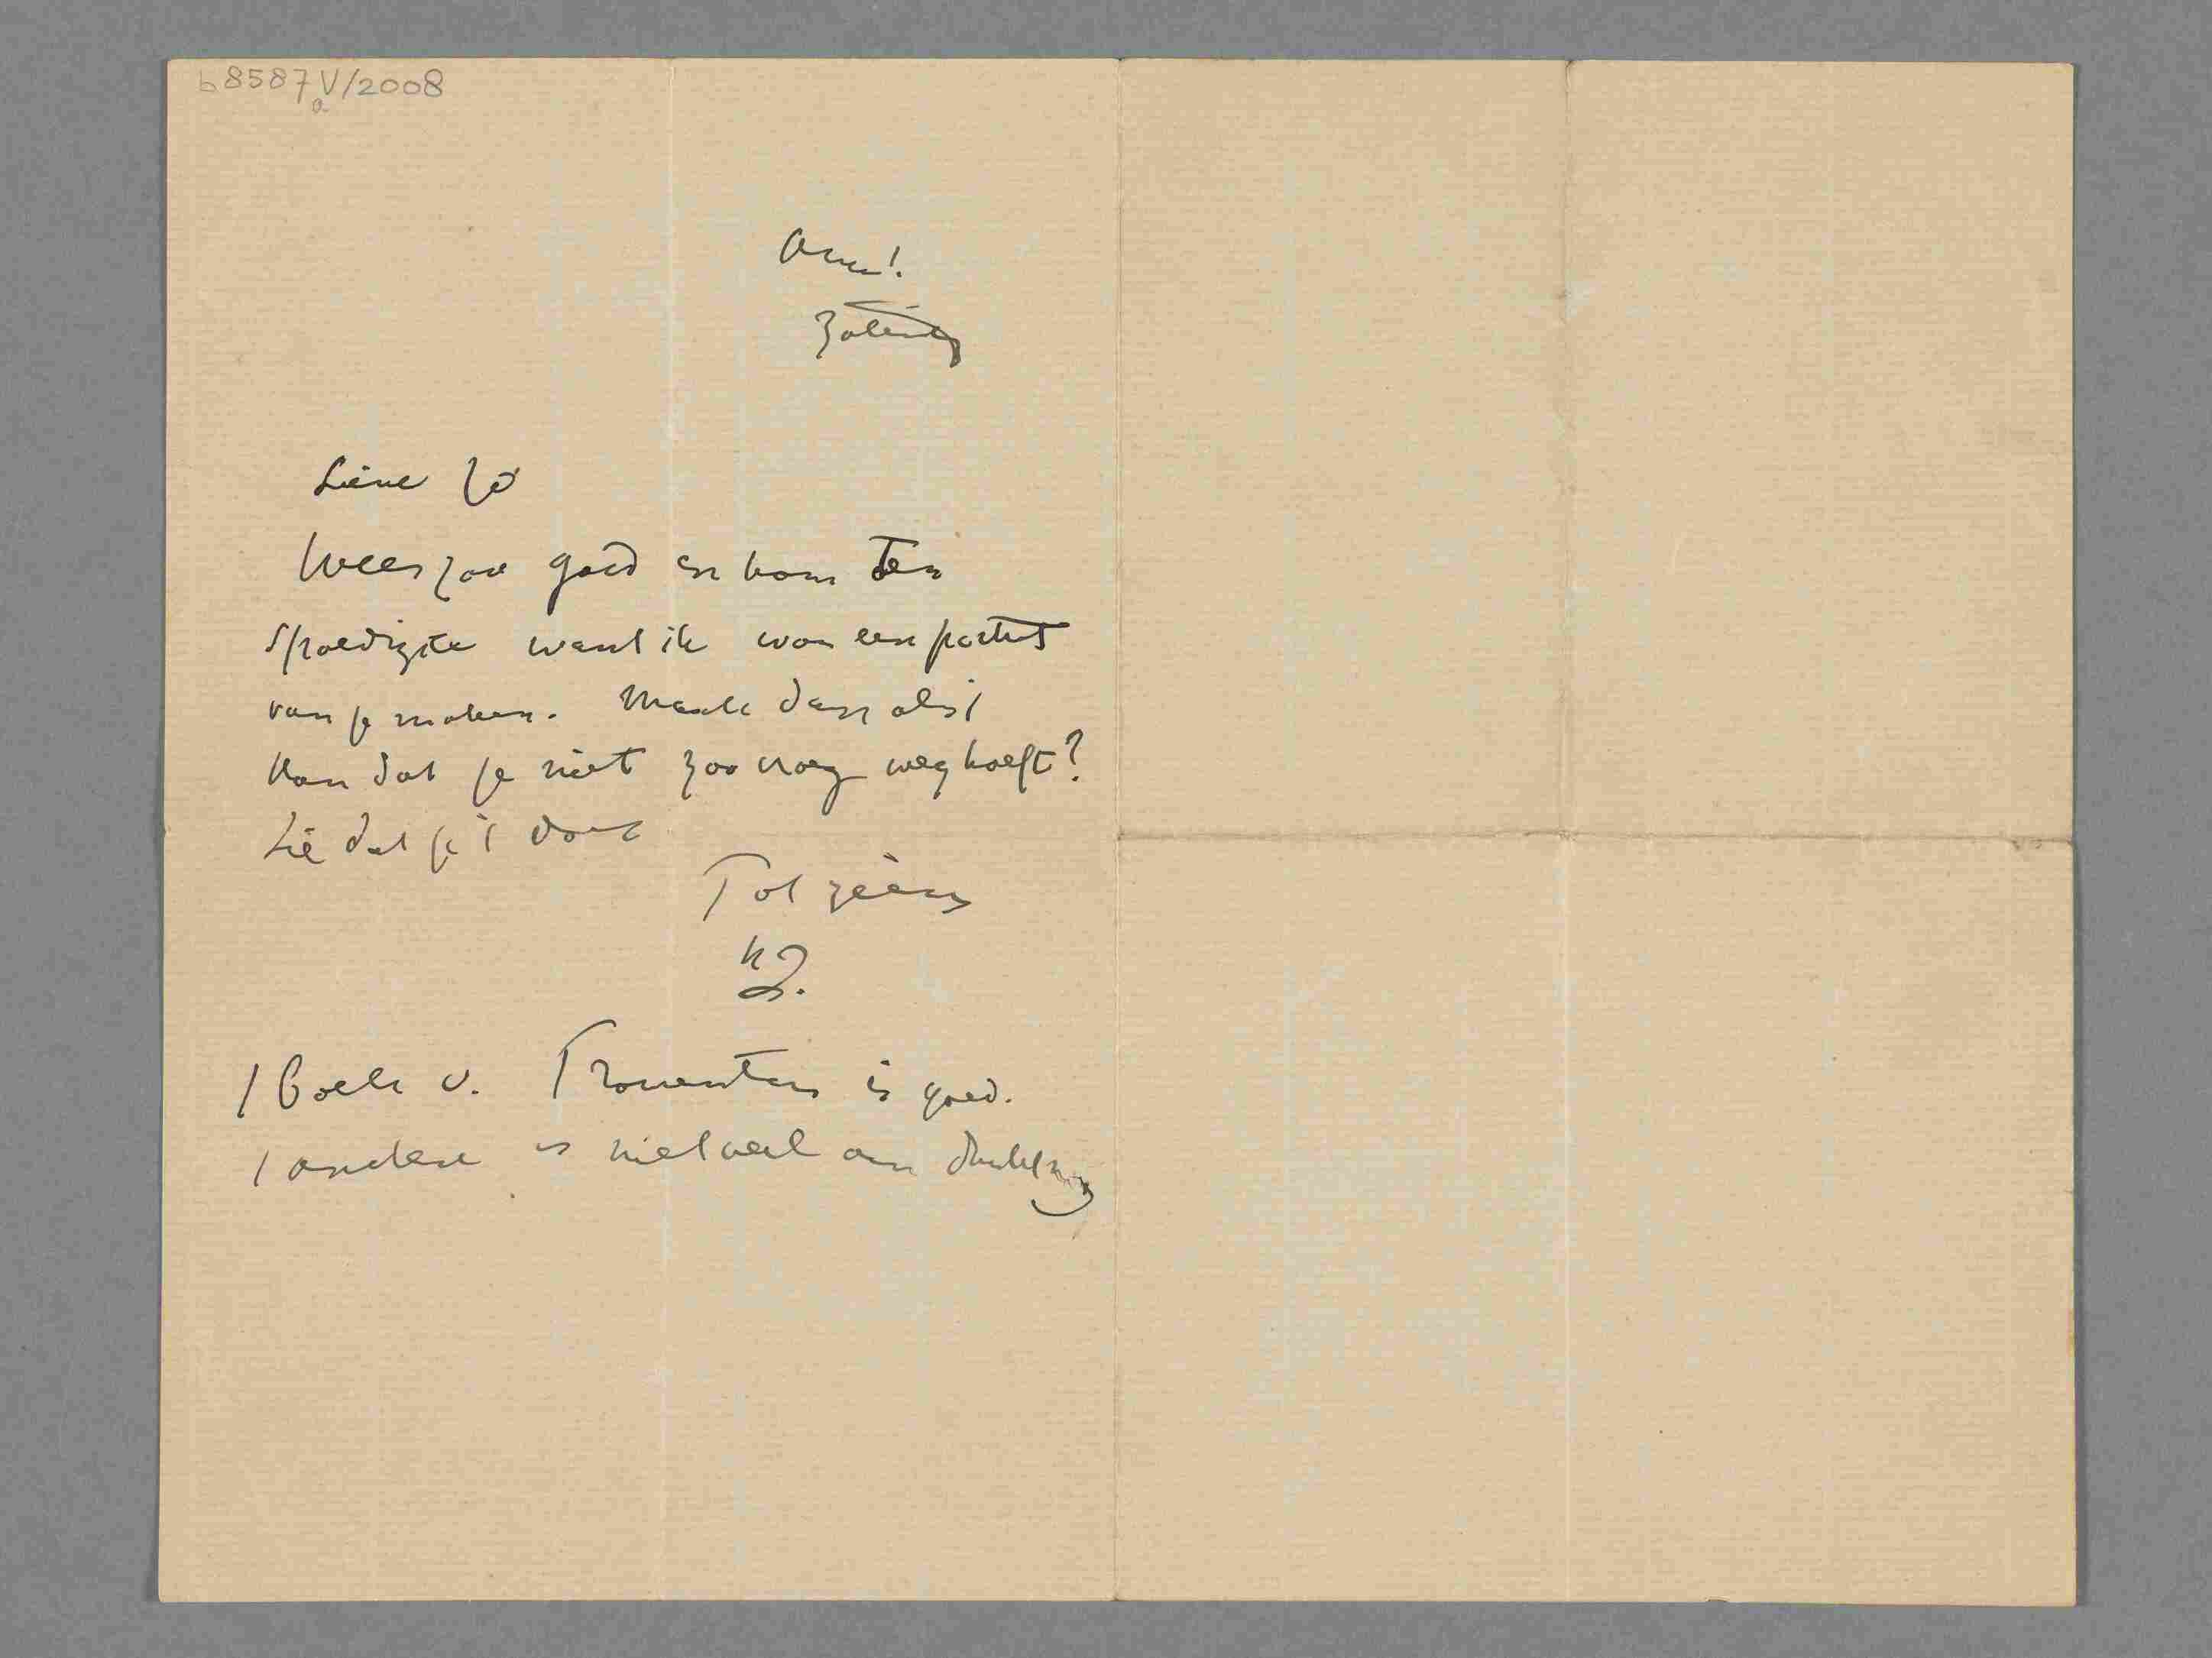 b8587 V/2008
a
Zaterdag
Lieve Jo
Wees zoo goed en kom ten
spoedigste want ik wou een portret
van je maken. Maak dan als 't
kan dat je niet zoo vroeg weg hoeft?
Zie dat je 't doet
Tot ziens
't Boek v. is goed.
't andere is niet veel aan